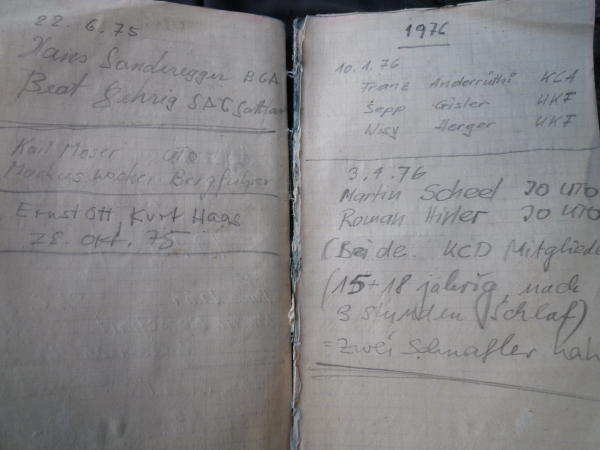 22. 6. 75
Hans Sanderegger BGA
Beat Gehrig SAC
Karl Moser UTO
Markus Bergführer
Ernst Ott, Kurt Haas
28. Okt. 75
1976
10.1.76
Franz Anderrüthi KCA
Sepp Gisler UKF
Wisy Herger UKF
3.4.76
Martin Scheel JO UTO
Roman Hirter JO UTO
(Beide KCD Mitglieder
(15+18 jährig, nach
3 Stunden Schlaf)
= zwei